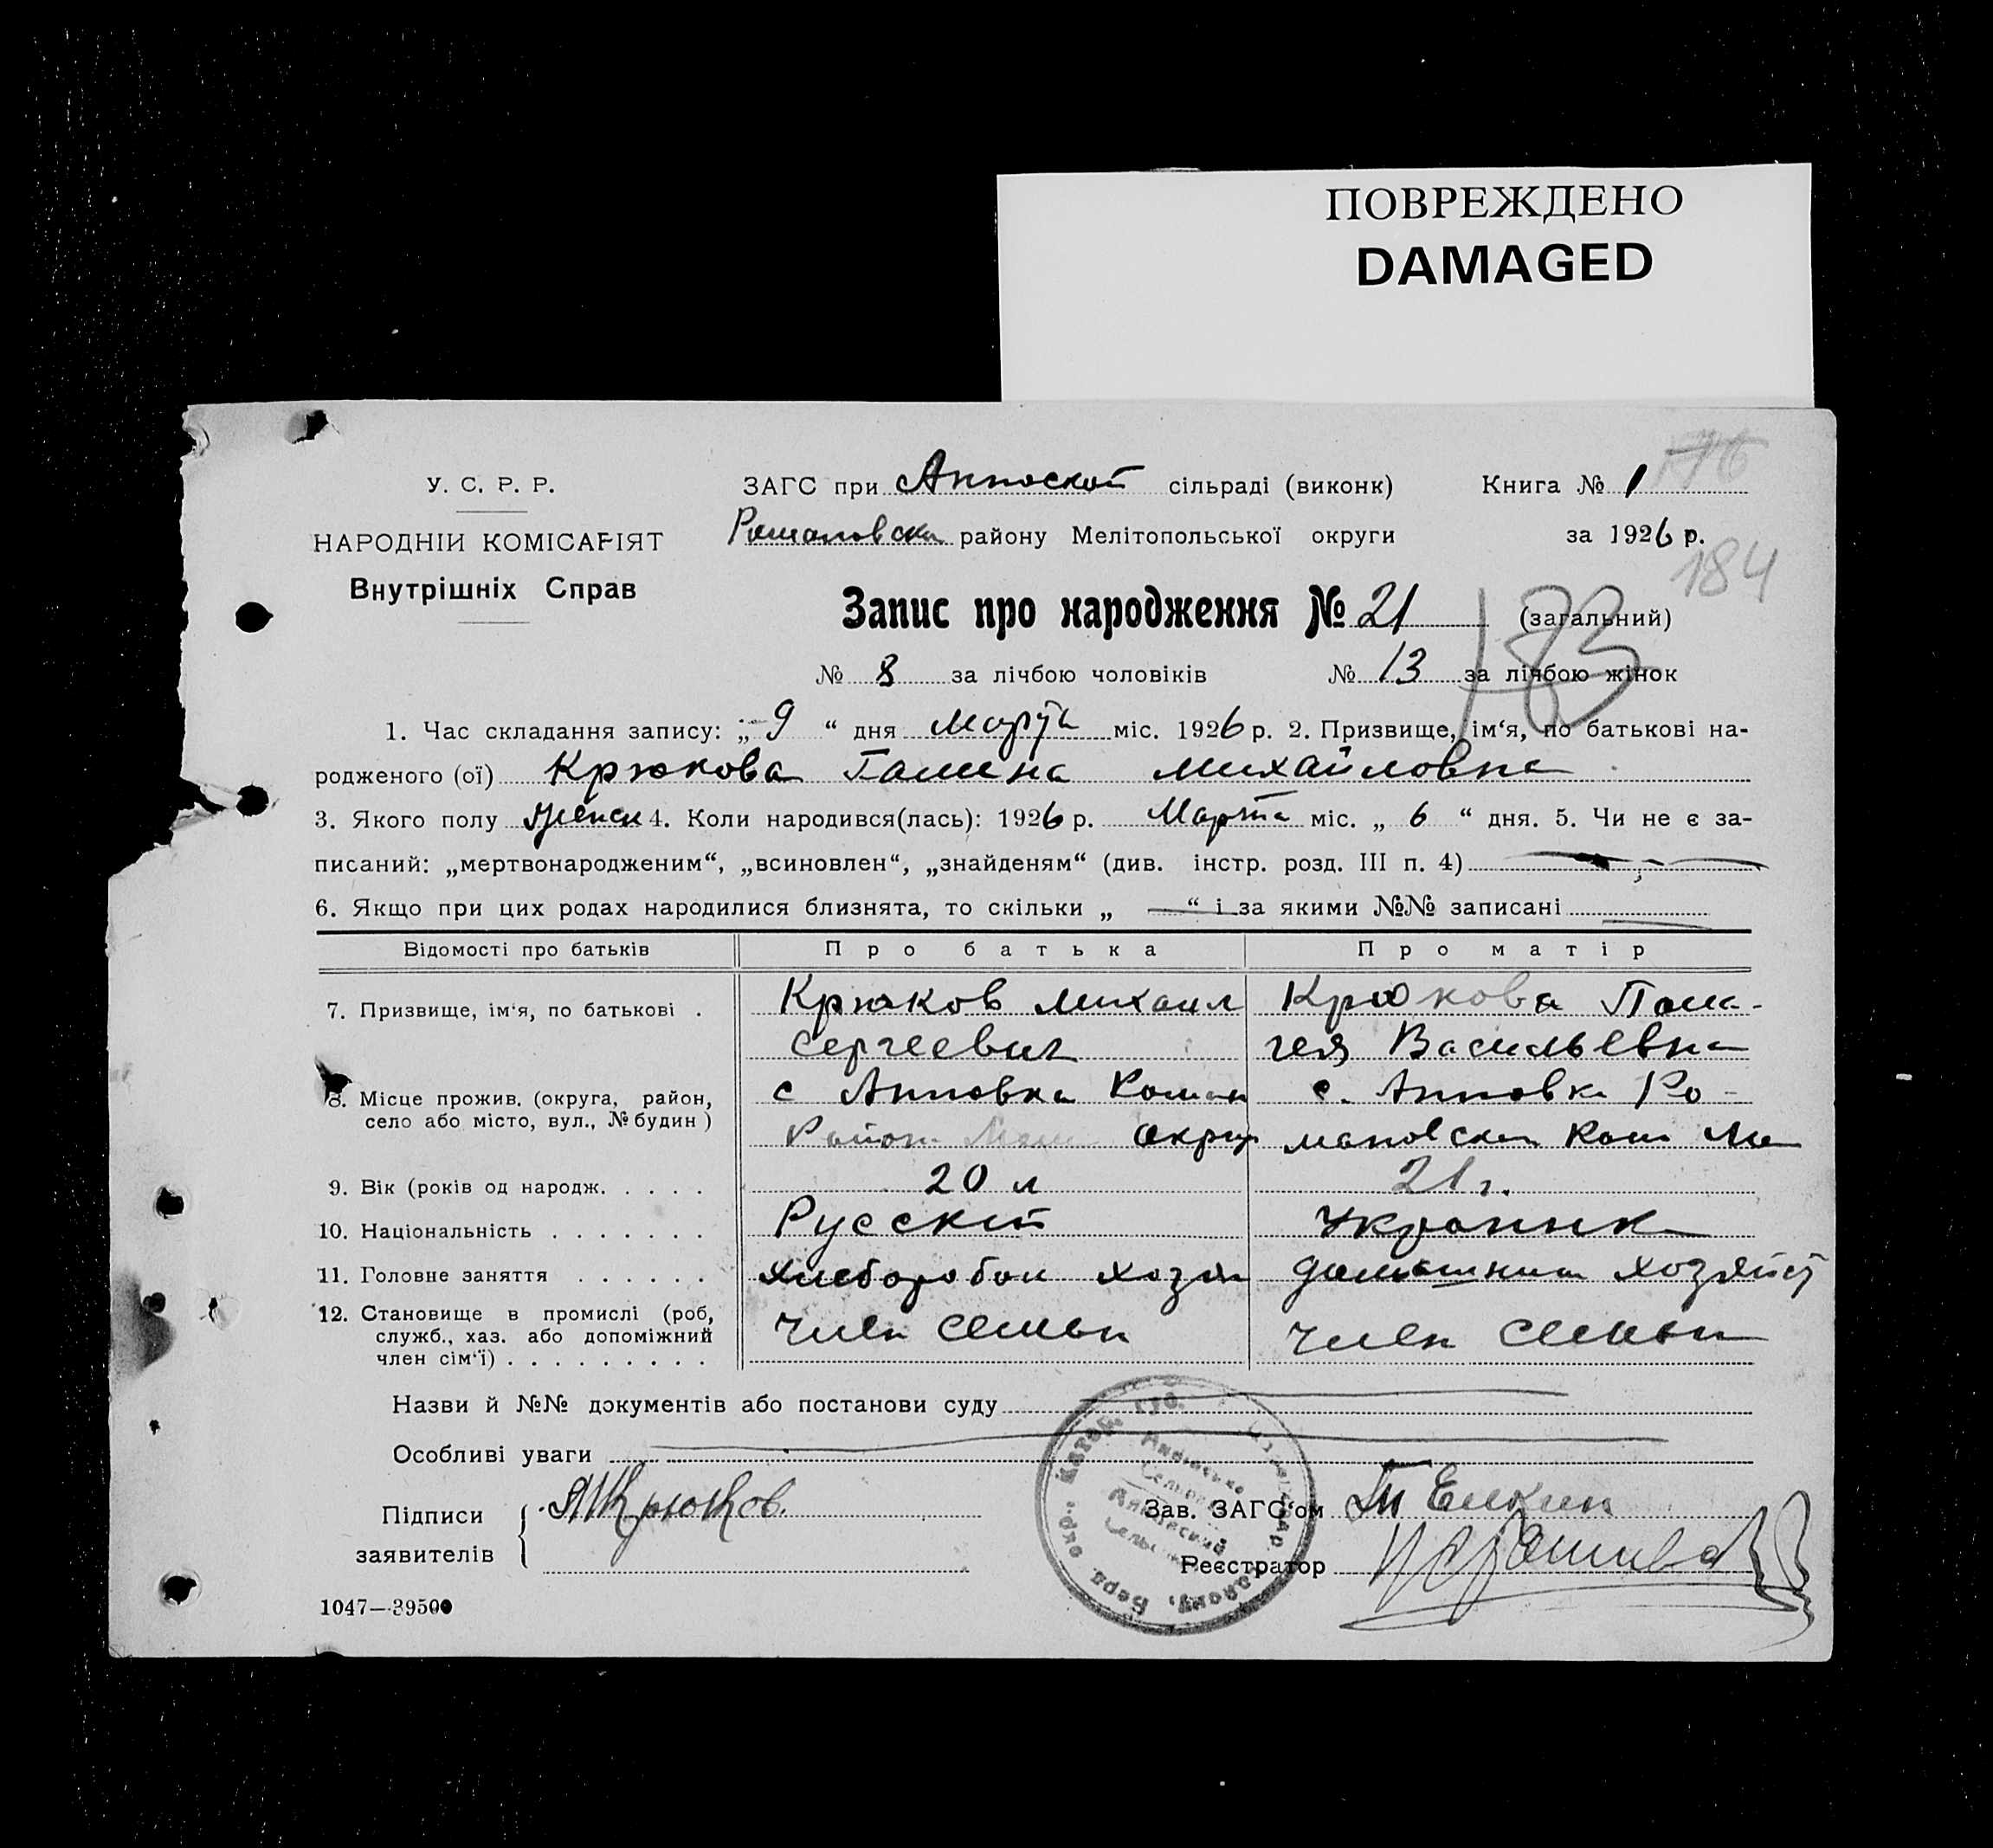 ПОВРЕЖДЕНО
DAMAGED
176
У. С. Р. Р.
ЗАГС при Анноской сільраді (виконк) Книга № 1
НАРОДНІЙ КОМІСАРІЯТ
Романовски району Мелітопольської округи за 1926 р.
Внутрішніх Справ
184
Запис про народження № 21 (загальний)
183
№ 8 за лічбою чоловіків № 13 за лічбою жінок
1. Час складання запису: „9“ дня Марта міс. 1926 р. 2. Призвище, ім‘я, по батькові на-
родженого (ої) Крюкова Галина Михайловна
3. Якого полу женск 4. Коли народився(лась): 1926 р. Марта міс. „ 6 “ дня. 5. Чи не є за-
писаний: „мертвонародженим“, „всиновлен“, „знайденям“ (див. інстр. розд. III п. 4)
6. Якщо при цих родах народилися близнята, то скільки „ — “ і за якими №№ записані
Відомості про батьків Про батька Про матір
7. Призвище, ім‘я, по батькові . Крюков Михаил Крюкова Пела-
Сергеевич гея Васильевна
8. Місце прожив. (округа, район, с Анновка Роман с. Анновка Ро-
село або місто, вул., № будин ) Район Мел Округ мановски
9. Вік (років од народж. . . . . 20 л 21 г.
10. Національність . . . . . . . Русский Украинка
11. Головне заняття . . . . . . хлеборобом хозяй домашним хозяйст
12. Становище в промислі (роб, член семьи член семьи
служб., хаз. або допоміжний
член сім‘ї) . . . . . . . . .
Назви й №№ документів або постанови суду
Особливі уваги
Підписи Крюков. Зав. ЗАГС‘ом Елкин
заявителів Реєстратор
1047—39500